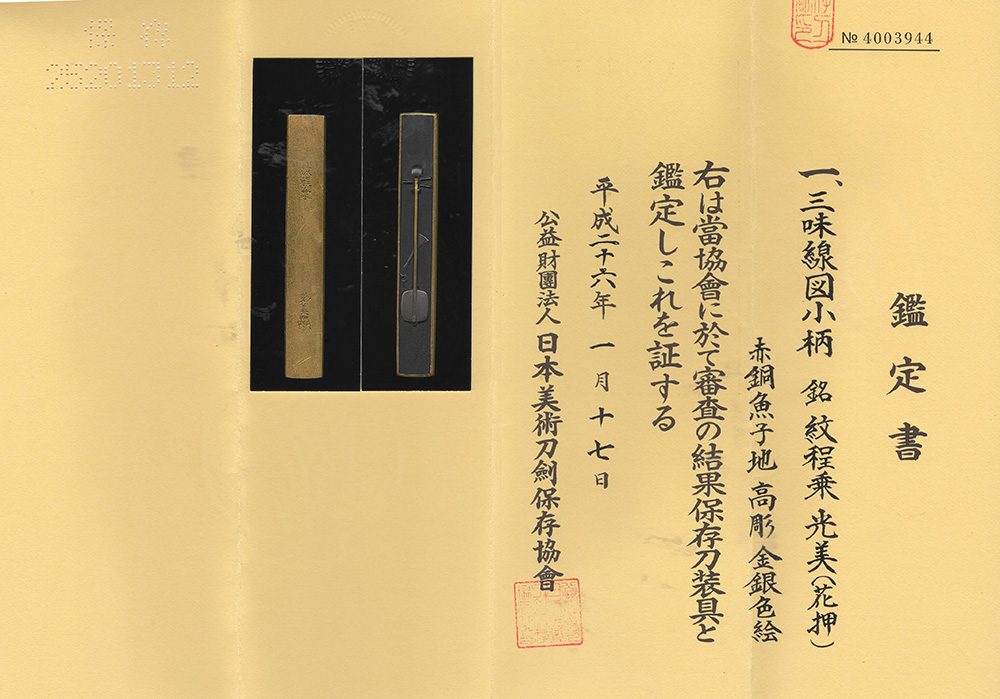 № 4003944
鑑定書
一、三味線図小柄 銘 紋程乗 光美(花押)
赤銅魚子地 高彫 金銀色絵
右は當協會に於て審査の結果保存刀装具と
鑑定しこれを証する
平成二十六年 一月十七日
公益財團法人 日本美術刀劍保存協會
25201312